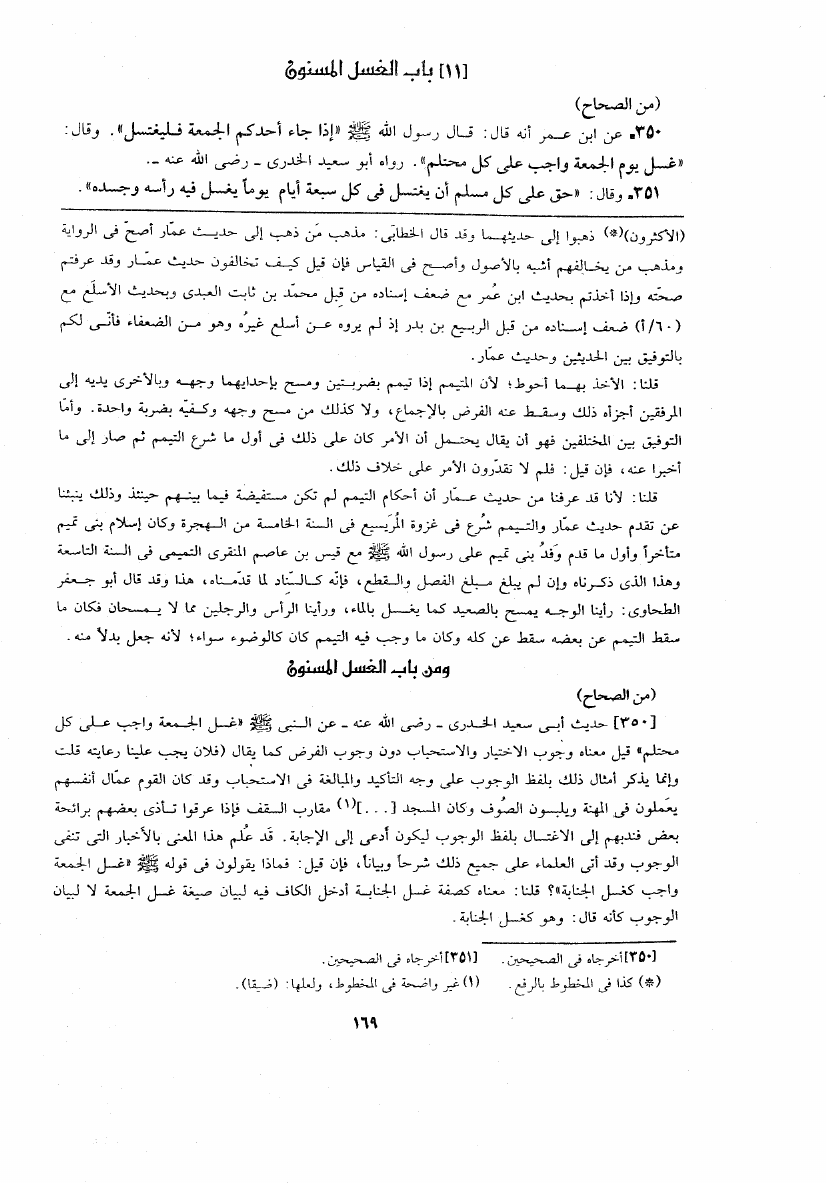 [١١] باب الغسل المسنون
(من الصحاح)
٣٥٠. عن ابن عـمر أنه قال: قـال رسول الله ﷺ «إذا جاء أحدكم الجمعة فـليغتسل». وقال:
«غسل يوم الجمعة واجب على كل محتلم». رواه أبو سعيد الخدرى ـ رضى الله عنه ـ.
٣٥١. وقال: «حق على كل مسلم أن يغتسل فى كل سبعة أيام يوماً يغسل فيه رأسه وجسده».
(الأكثرون)(*) ذهبوا إلى حديثهـما وقد قال الخطابّى: مذهب مَن ذهب إلى حديـث عمّار أصحّ فى الرواية
ومذهب من يخـالفهم أشبه بالأصول وأصـح فى القياس فإن قيل كيـف تخالفون حديث عمّـار وقد عرفتم
صحّته وإذا أخذتم بحديث ابن عُمر مع ضعف إسناده من قبل محمّد بن ثابت العبدى وبحديث الأسلَع مع
(٦٠/أ) ضعف إسـناده من قبل الربيـع بن بدر إذ لم يروه عـن أسلع غيرُه وهو مـن الضعفاء فأنّـى لكم
بالتوفيق بين الحديثين وحديث عمّار.
قلنا: الأخذ بهـما أحوط؛ لأن المتيمم إذا تيمم بضربـتين ومسح بإحدايهما وجهـه وبالأخرى يديه إلى
المرفقين أجزأه ذلك وسقـط عنه الفرض بالإجماع، ولا كذلك من مسح وجهه وكـفيّه بضربة واحدة. وأمّا
التوفيق بين المختلفين فهو أن يقال يحتـمل أن الأمر كان على ذلك فى أول ما شرع التيمم ثم صار إلى ما
أخبرا عنه، فإن قيل: فلم لا تقدّرون الأمر على خلاف ذلك.
قلنا: لأنا قد عرفنا من حديث عـمّار أن أحكام التيمم لم تكن مستفيضة فيما بينـهم حينئذ وذلك ينبئنا
عن تقدم حديث عمّار والتـيمم شُرع فى غزوة المُريَسيع فى السنة الخامسة من الـهجرة وكان إسلام بنى تميم
متأخراً وأول ما قدم وَفدُ بنى تميم على رسول الله ﷺ مع قيس بن عاصم المنقرى التميمى فى السنة التاسعة
وهذا الذى ذكـرناه وإن لم يبلغ مـبلغ الفصل والـقطع، فإنّه كـالسّناد لما قدّمـناه، هذا وقد قال أبو جـعفر
الطحاوى: رأينا الوجـه يمسـح بالصعيد كما يغسـل بالماء، ورأينا الرأس والرجلين مما لا يـمسحان فكان ما
سقط التيمم عن بعضه سقط عن كله وكان ما وجب فيه التيمم كان كالوضوء سواء؛ لأنه جعل بدلاً منه.
ومن باب الغسل المسنون
(من الصحاح)
[٣٥٠] حديث أبـى سعيد الخـدرى ـ رضى الله عنه ـ عن الـنبى ﷺ «غسل الجـمعة واجب علـى كل
محتلم» قيل معناه وجوب الاختيار والاستحباب دون وجوب الفرض كما يقال (فلان يجب علينا رعايته قلت
وإنما يذكر أمثال ذلك بلفظ الوجوب على وجه التأكيد والمبالغة فى الاستحباب وقد كان القوم عمّال أنفسهم
يعملون فى المهنة ويلبـسون الصوف وكان المسجد [. . .](١) مقارب السقف فإذا عرقوا تـأذى بعضهم برائحة
بعض فندبهم إلى الاغتسال بلفظ الوجوب ليكون أدعى إلى الإجابة. قد عُلم هذا المعنى بالأخبار التى تنفى
الوجوب وقد أتى العلماء على جميع ذلك شرحاً وبياناً، فإن قيل: فماذا يقولون فى قوله ﷺ «غسل الجمعة
واجب كغسل الجنابة»؟ قلنا: معناه كصفة غسل الجنابـة أدخل الكاف فيه لبيان صيغة غسل الجمعة لا لبيان
الوجوب كأنه قال: وهو كغسل الجنابة.
[٣٥٠] أخرجاه فى الصحيحين. [٣٥١] أخرجاه فى الصحيحين.
(*) كذا فى المخطوط بالرفع. (١) غير واضحة فى المخطوط، ولعلها: (ضيقا).
١٦٩